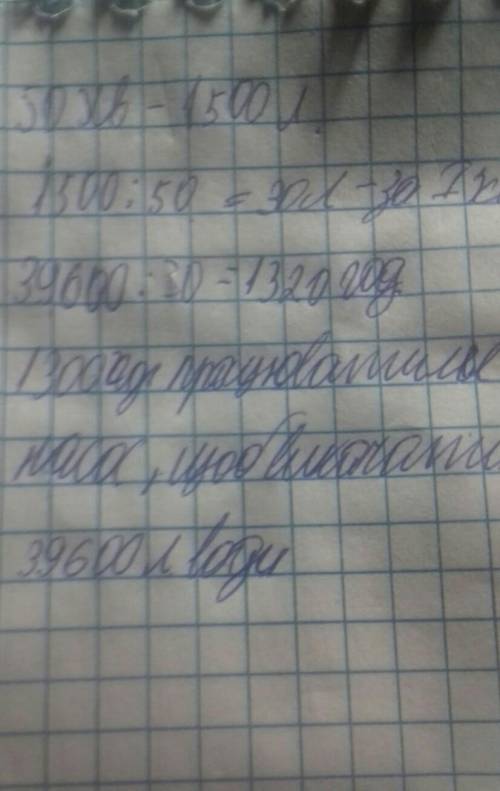 50 хв - 1500 л.
1500 : 50 = 30 л - за 1 х
39600 : 30 = 1320 год
1300 год працюватиме
насос, щоб викачати
39600 л води